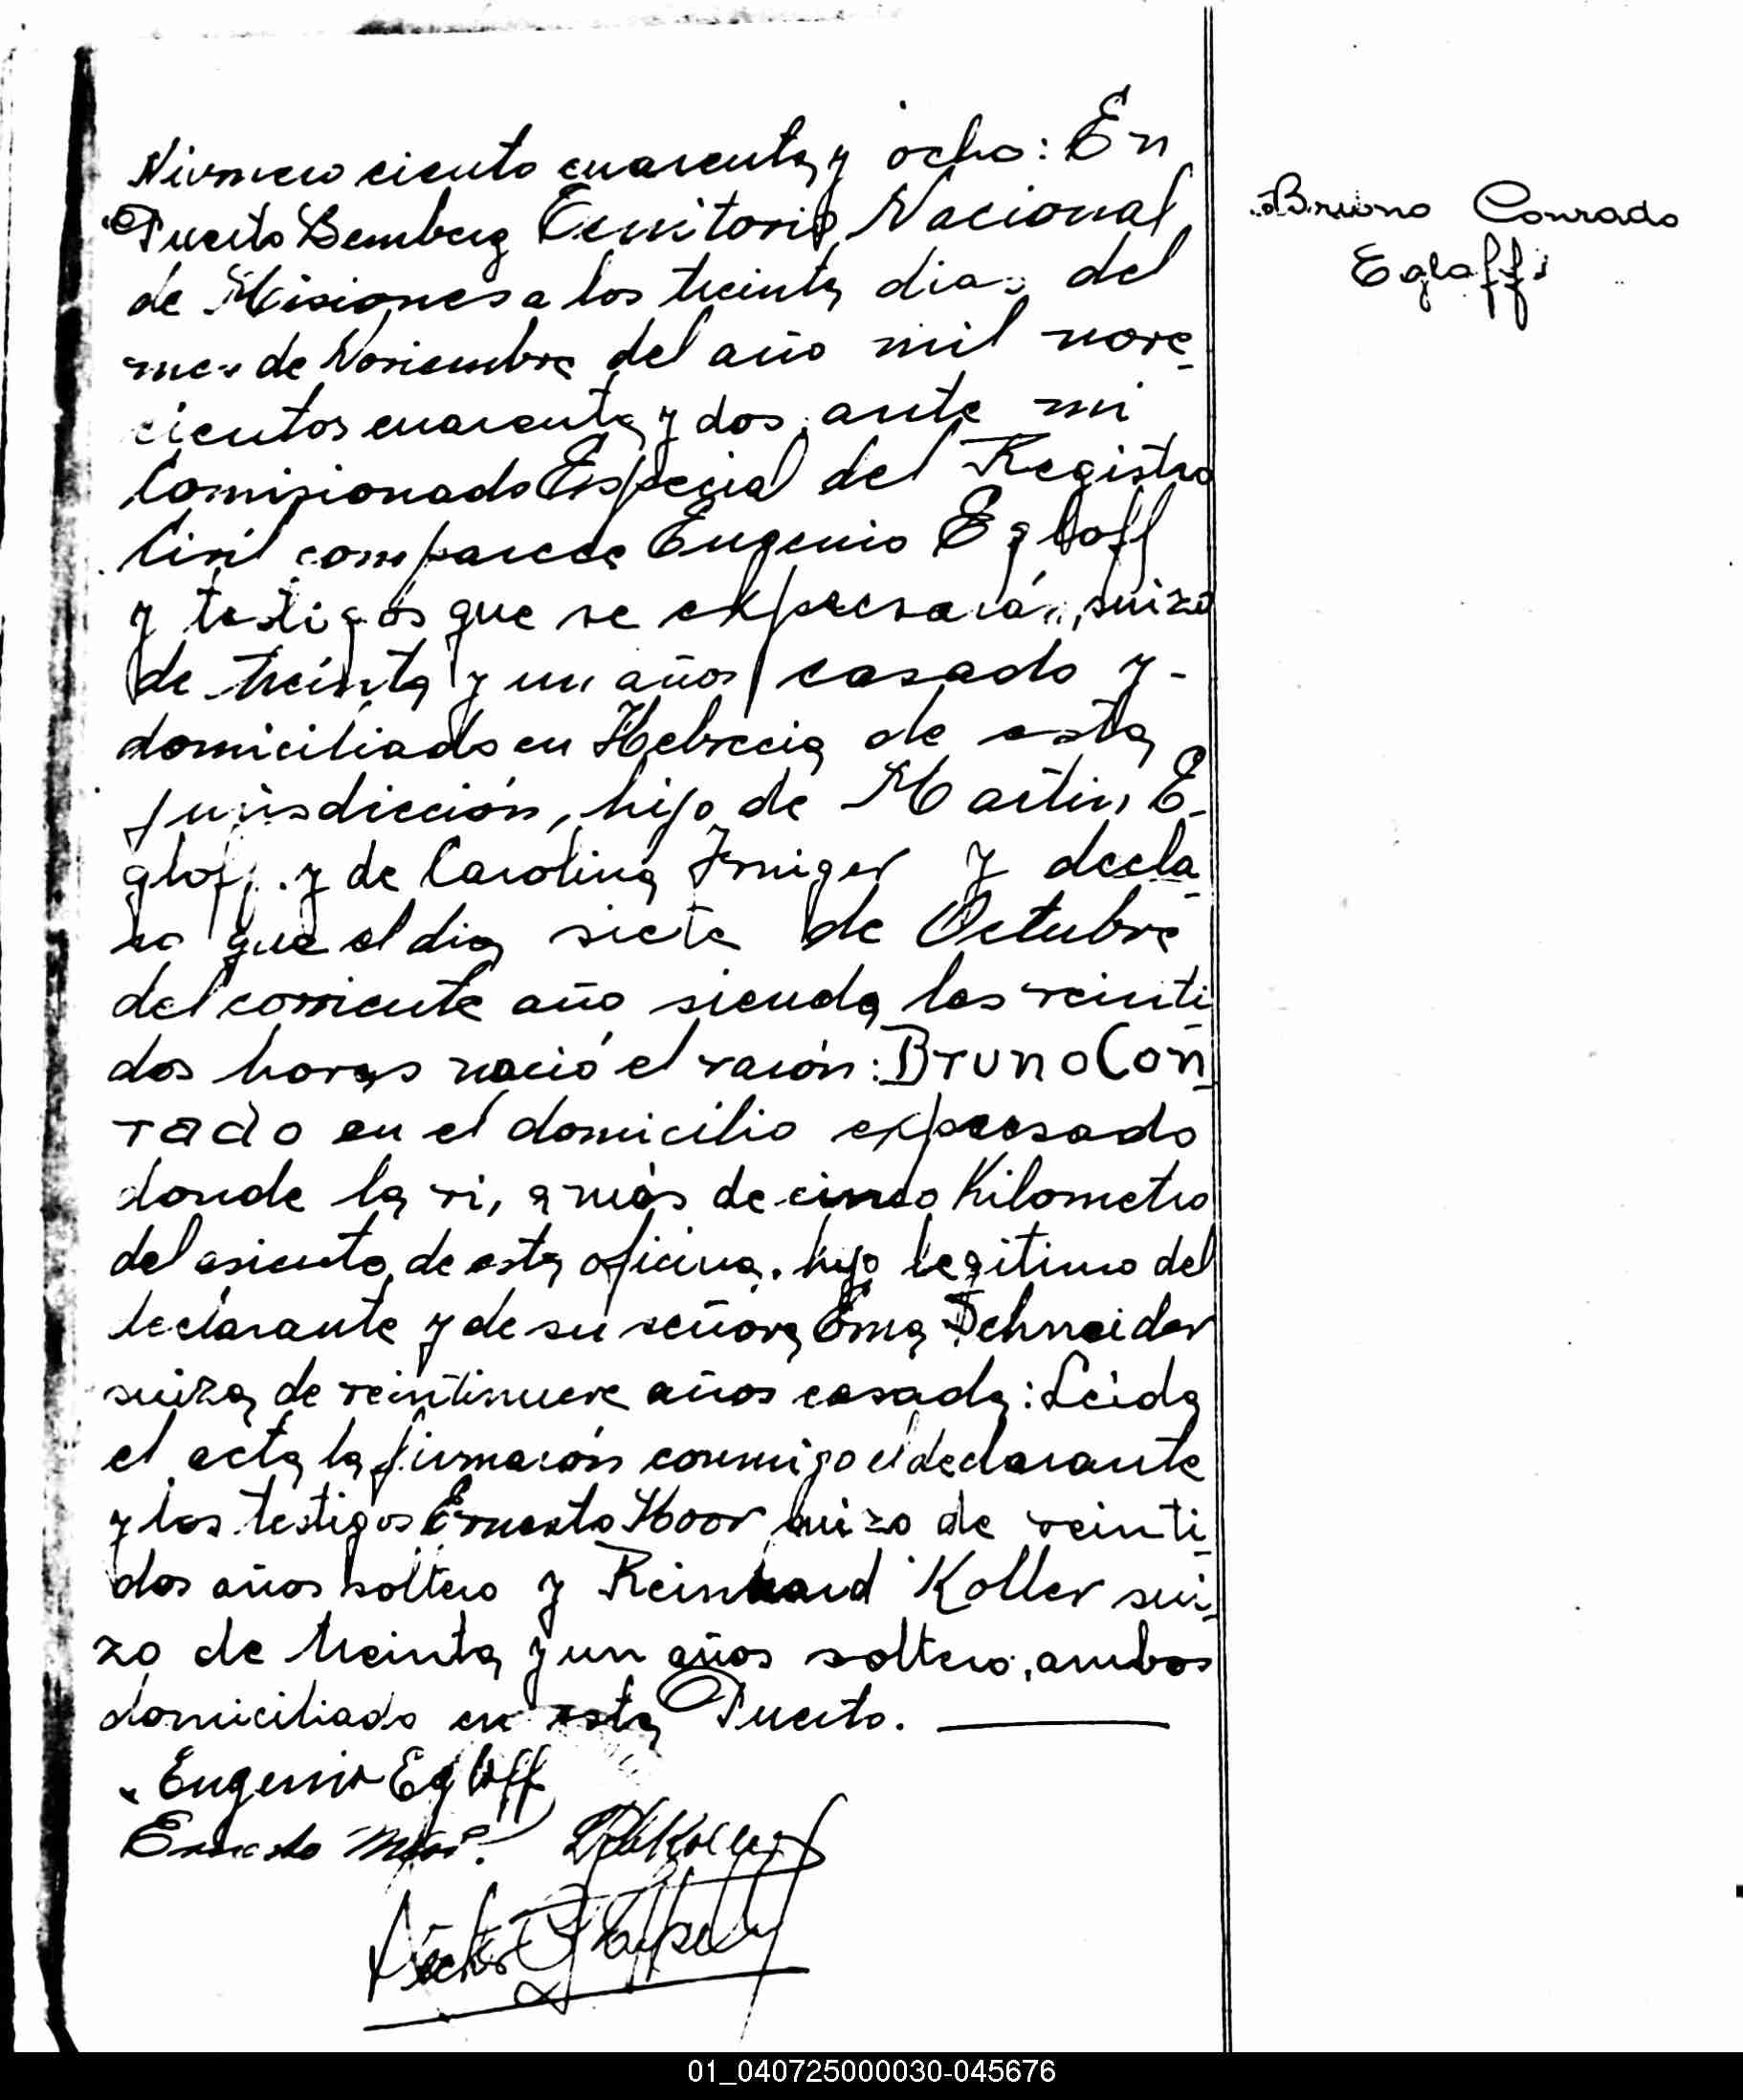 Número ciento cuarenta y ocho: En
Puerto Bemberg Territorio Nacional
de Misiones a los treinta dias del
mes de Noviembre del año mil nove-
cientos cuarenta y dos, ante mi
Comisionado Especial del Registro
Civil comparece Eugenio Egloff
y testigos que se expresarán, suizo
de treinta y un años casado y -
domiciliado en Helvecia de esta
jurisdicción, hijo de Martin E-
gloff y de Carolina Irniger y decla-
ro que el dia siete de Octubre
del corriente año siendo las veinti-
dos horas nació el varón: Bruno Con-
rado en el domicilio expresado
donde lo vi, a más de cinco Kilometro
del asiento de esta oficina. hijo legitimo del
declarante y de su señora Ema Schneider
suiza de veintinueve años casada: Leida
el acta la firmarón conmigo el declarante
y los testigos Ernesto Moor suizo de veinti-
dos años soltero y Reinhard Koller sui-
zo de treinta y un años soltero, ambos
domiciliado en este Puerto.
Eugenio Egloff
Ernesto Moor. Koller
Bruno Conrado
Egloff
01_040725000030-045676